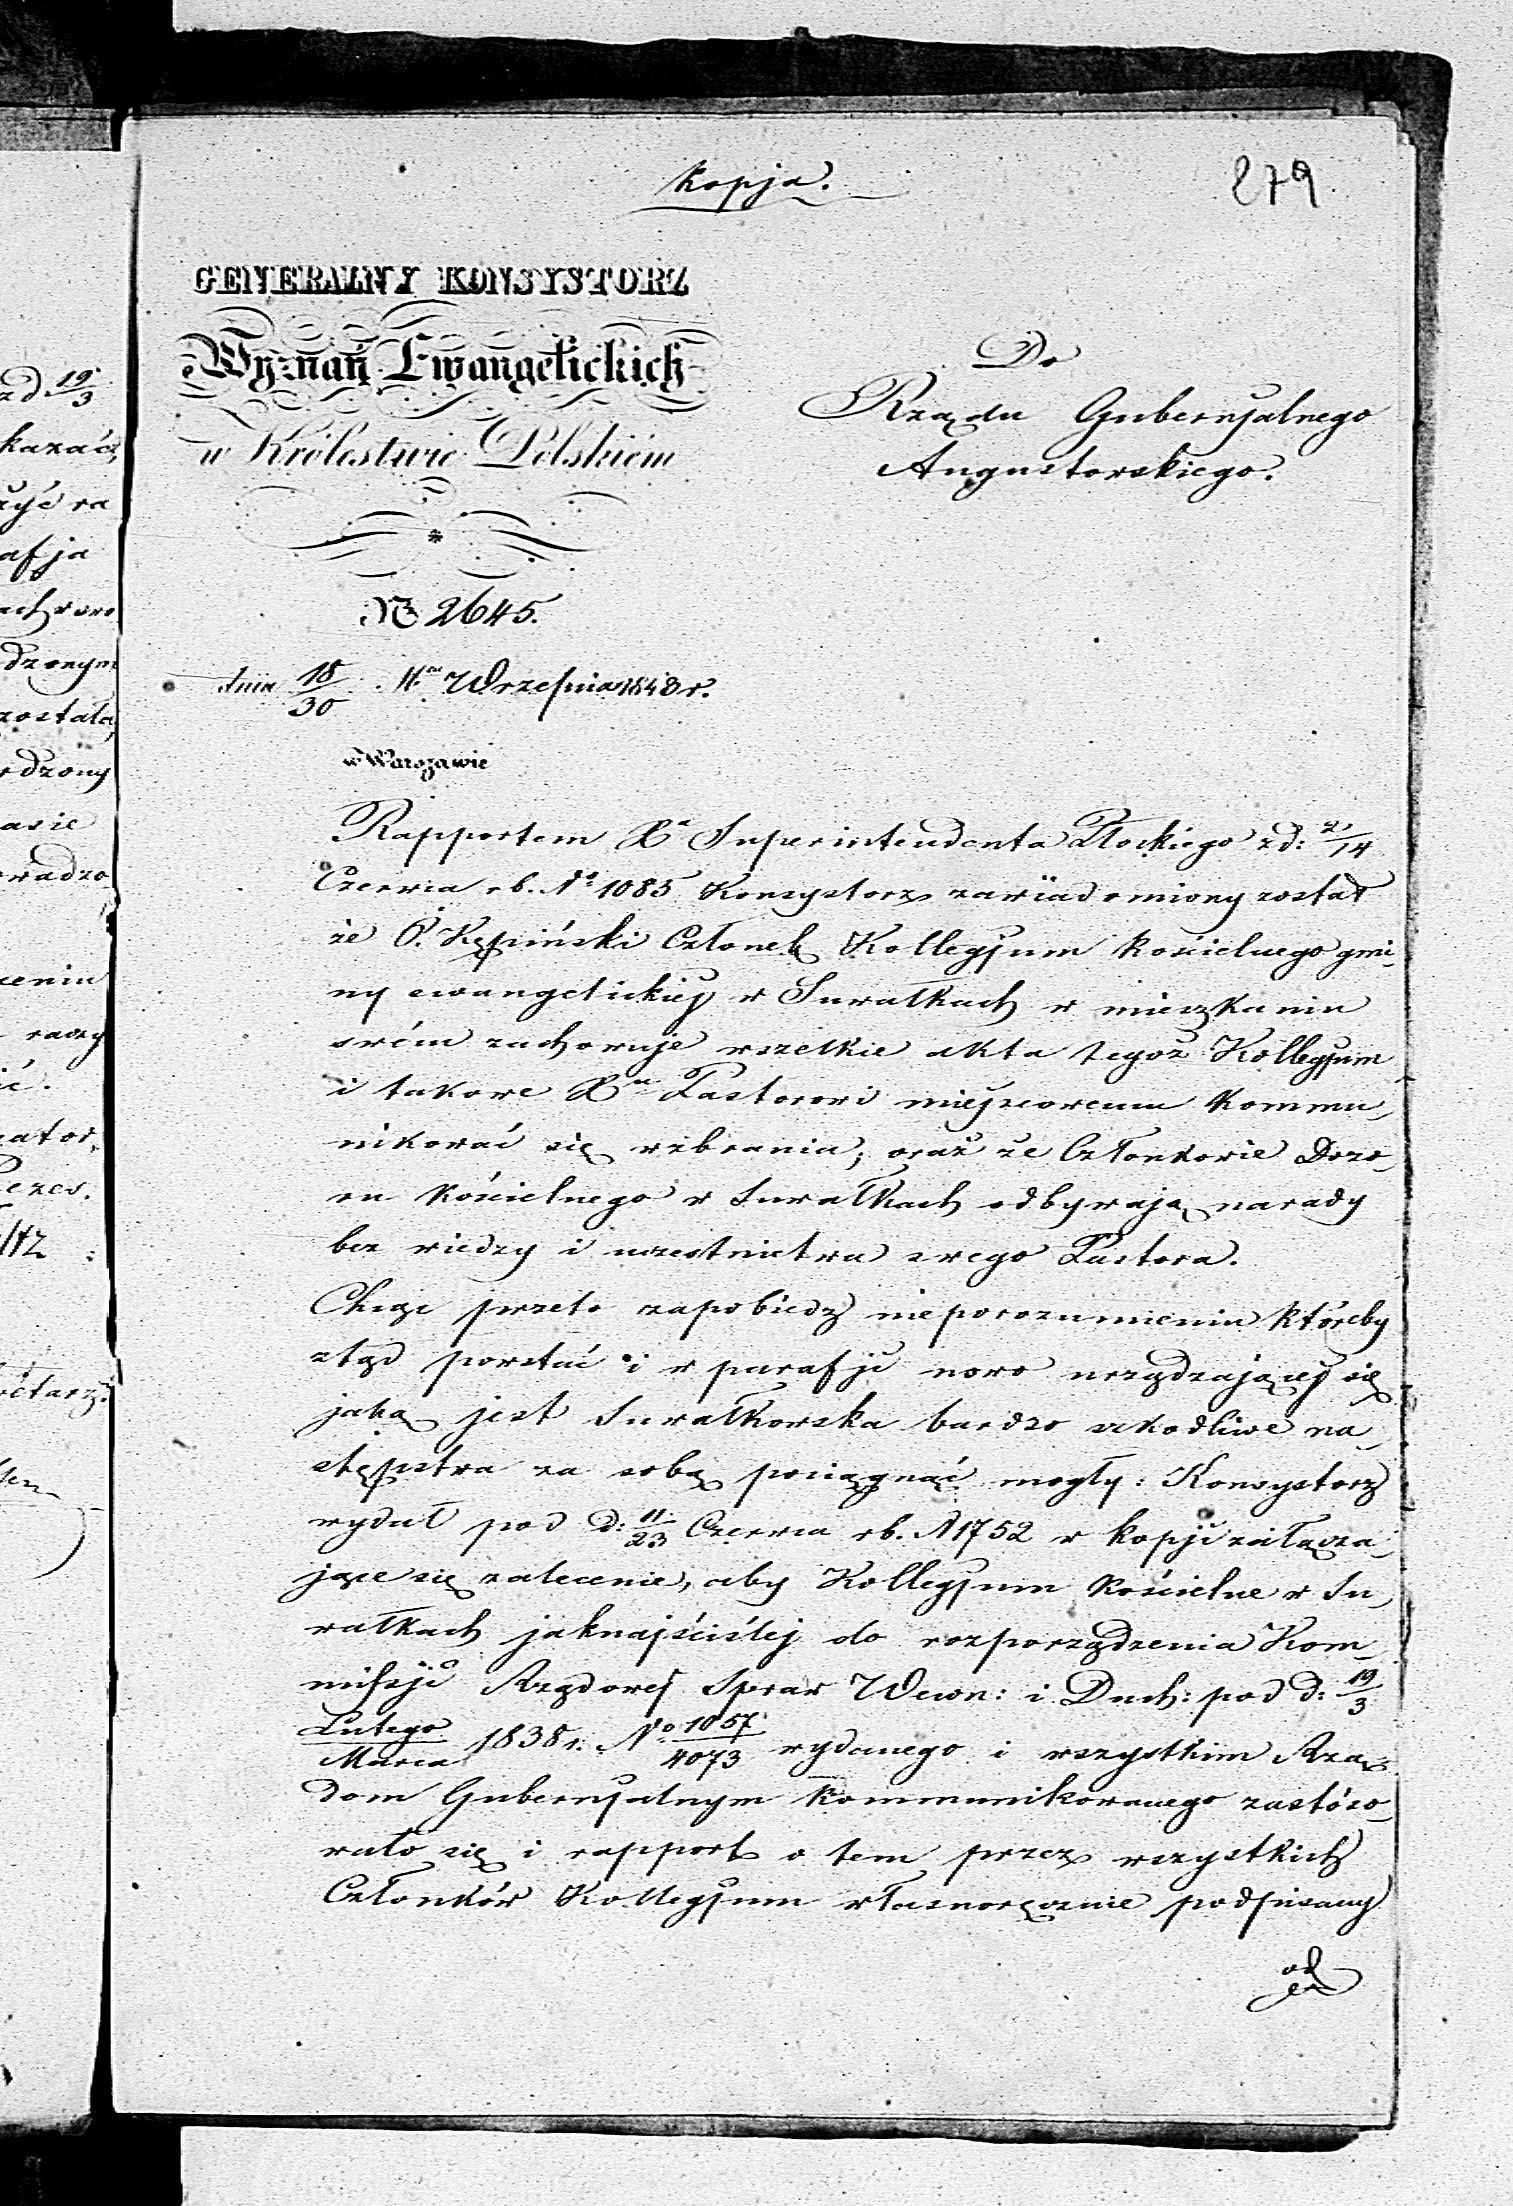 Kopja.
279
GENERALNY KONSYSTORZ
Wyznań Ewangelickich
w Królestwie Polskiém
№ 2645.
dnia 18/30 Września 1843 r.
w Warszawie
Do
Rządu Gubernjalnego
Augustowskiego.
Rapportem Xa Superintendenta Płockiego z d: 2/14
Czerwca r b. No 1085 Konsystorz zawiadomiony został
że P. Kępiński Członek Kollegjum Kościelnego gmi-
ny ewangelickiej w Suwałkach w mieszkaniu
swém zachowuje wszelkie akta tegoż Kollegjum
i takowe Xu Pastorowi miejscowemu kommu-
nikować się wzbrania; oraz że Członkowie Dozo-
ru Kościelnego w Suwałkach odbywają narady
bez wiedzy i uczestnictwa swego Pastora.
Chcąc przeto zapobiedz nieporozumieniu któreby
ztąd powstać i w parafji nowo urządzającej się
jaką jest Suwałkowska bardzo szkodliwe na-
stępstwa za sobą pociągnąć mogły: Konsystorz
wydał pod d: 11/23 Czerwca rb. N 1752 w kopji załącza-
jące się zalecenie, aby Kollegjum Kościelne w Su-
wałkach jaknajściślej do rozporządzenia Kom-
missji Rządowej Spraw Wewn: i Duch: pod d: 19/3
Lutego/Marca 1838 r. No 1057/4073 wydanego i wszystkim Rzą-
dom Gubernjalnym kommunikowanego zastóso-
wało się i rapport o tem przez wszystkich
Członków Kollegjum własnoręcznie podpisany